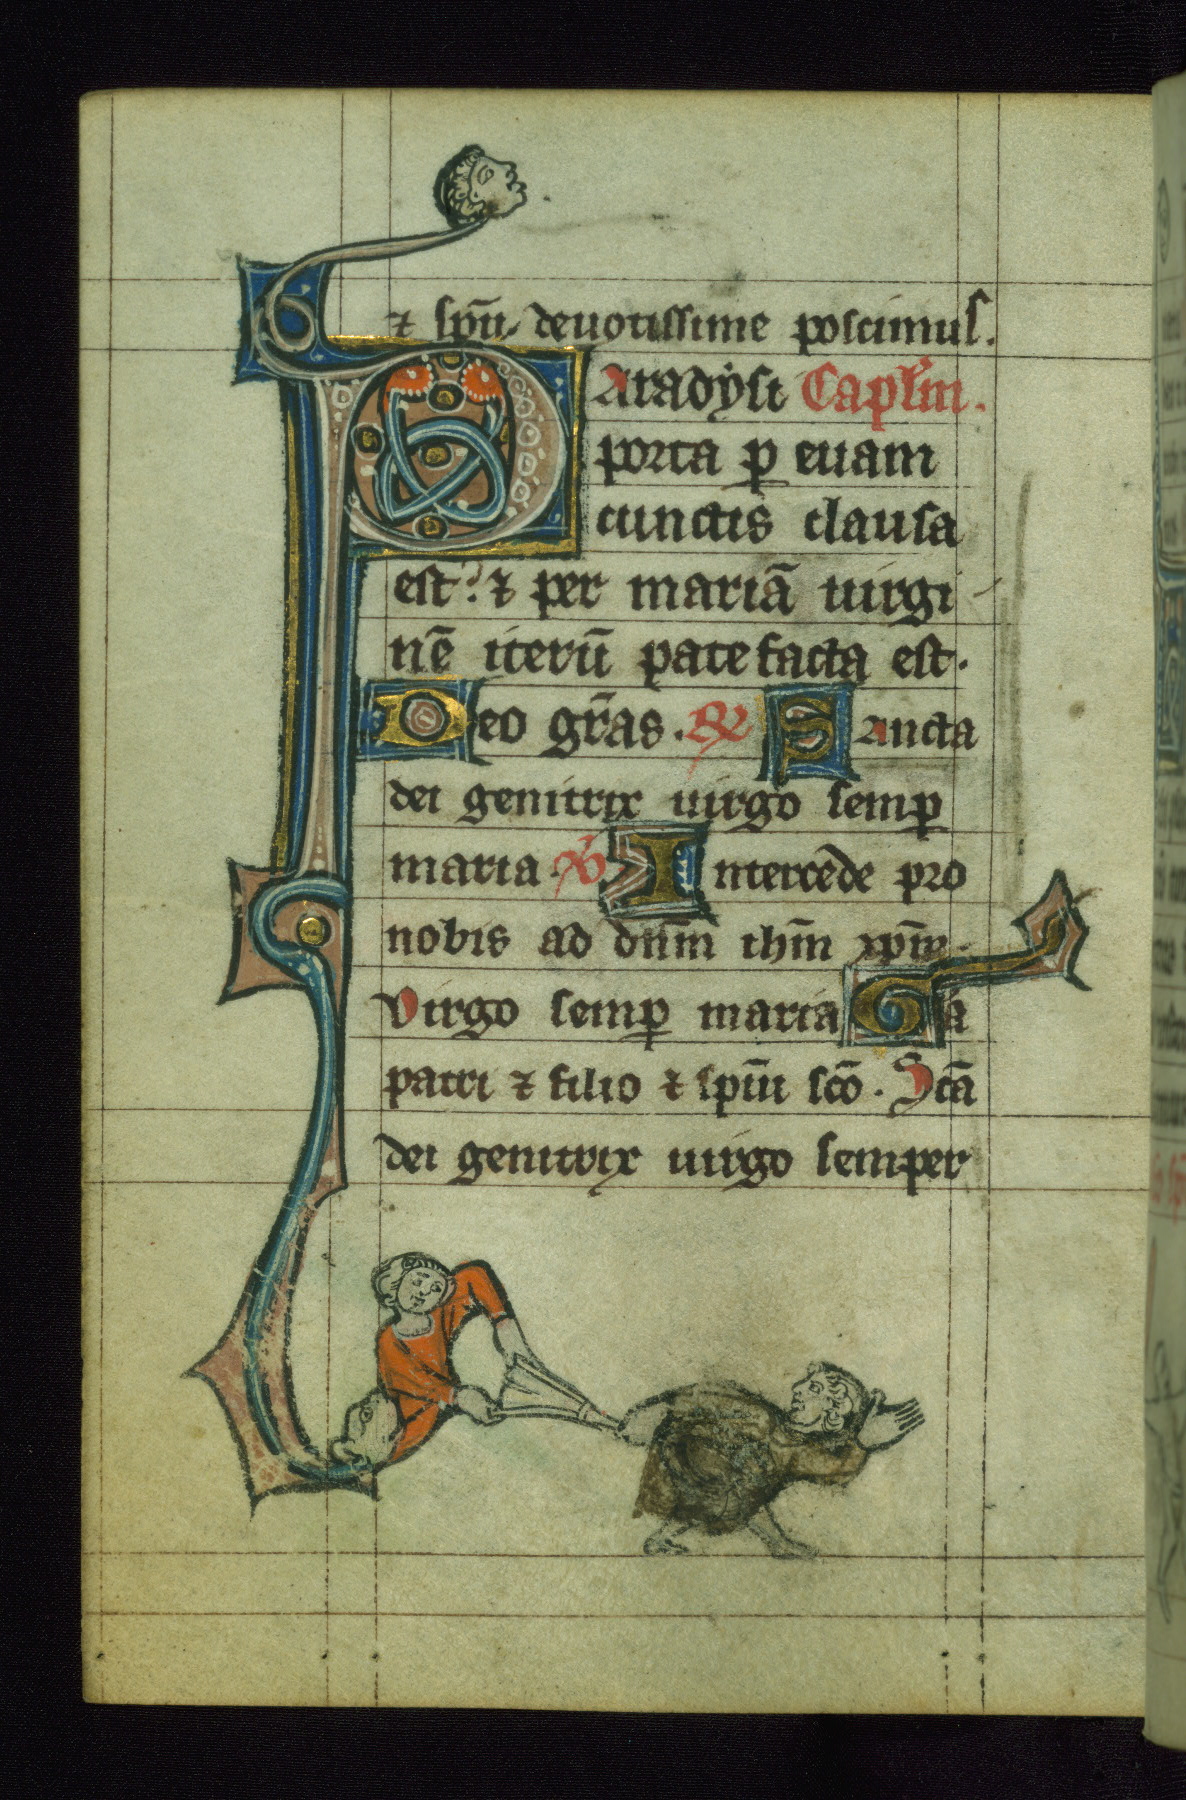 ⁊ spū deuotissime poscimus.
PAradẏsi Capl'm.
porta ꝑ euam
cunctis clausa
est: ⁊ per mariā uirgi
nē iterū patefacta est.
Deo gr̄as. ℟ Sancta
dei genitrix uirgo semꝑ
maria. ℣ Intercede pro
nobis ad dn̄m ihm̄ xpm̄.
Virgo semꝑ maria Gl'a
patri ⁊ filio ⁊ spiūi scō. Scā
dei genitrix uirgo semper